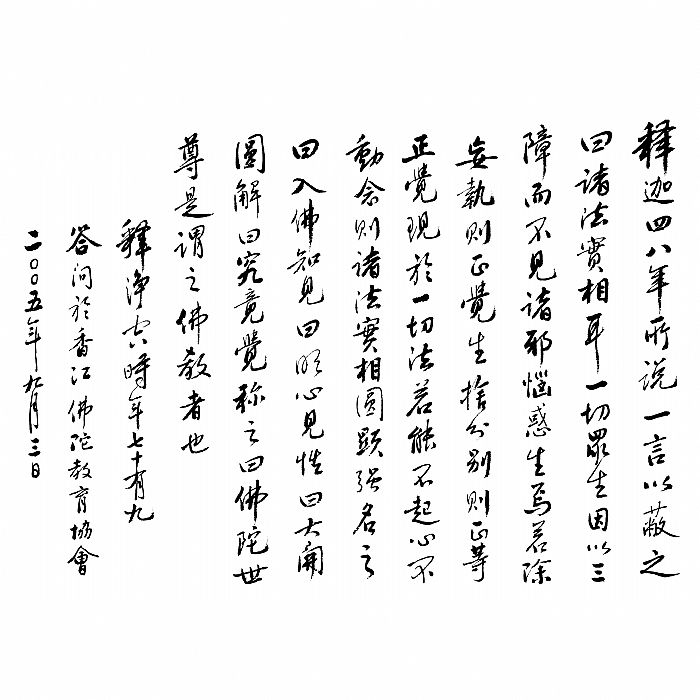 释迦四八年所说一言以蔽之
曰诸法實相耳一切眾生因以三
障而不见诸邪惱惑生焉若除
妄執则正覺生捨分别则正等
正覺现於一切法若能不起心不
動念则诸法實相圆顯强名之
曰入佛知见曰明心见性曰大開
圓解曰究竟覺称之曰佛陀世
尊是謂之佛教者也
釋淨空時年七十有九
答问於香江佛陀教育協會
二〇〇五年九月三日